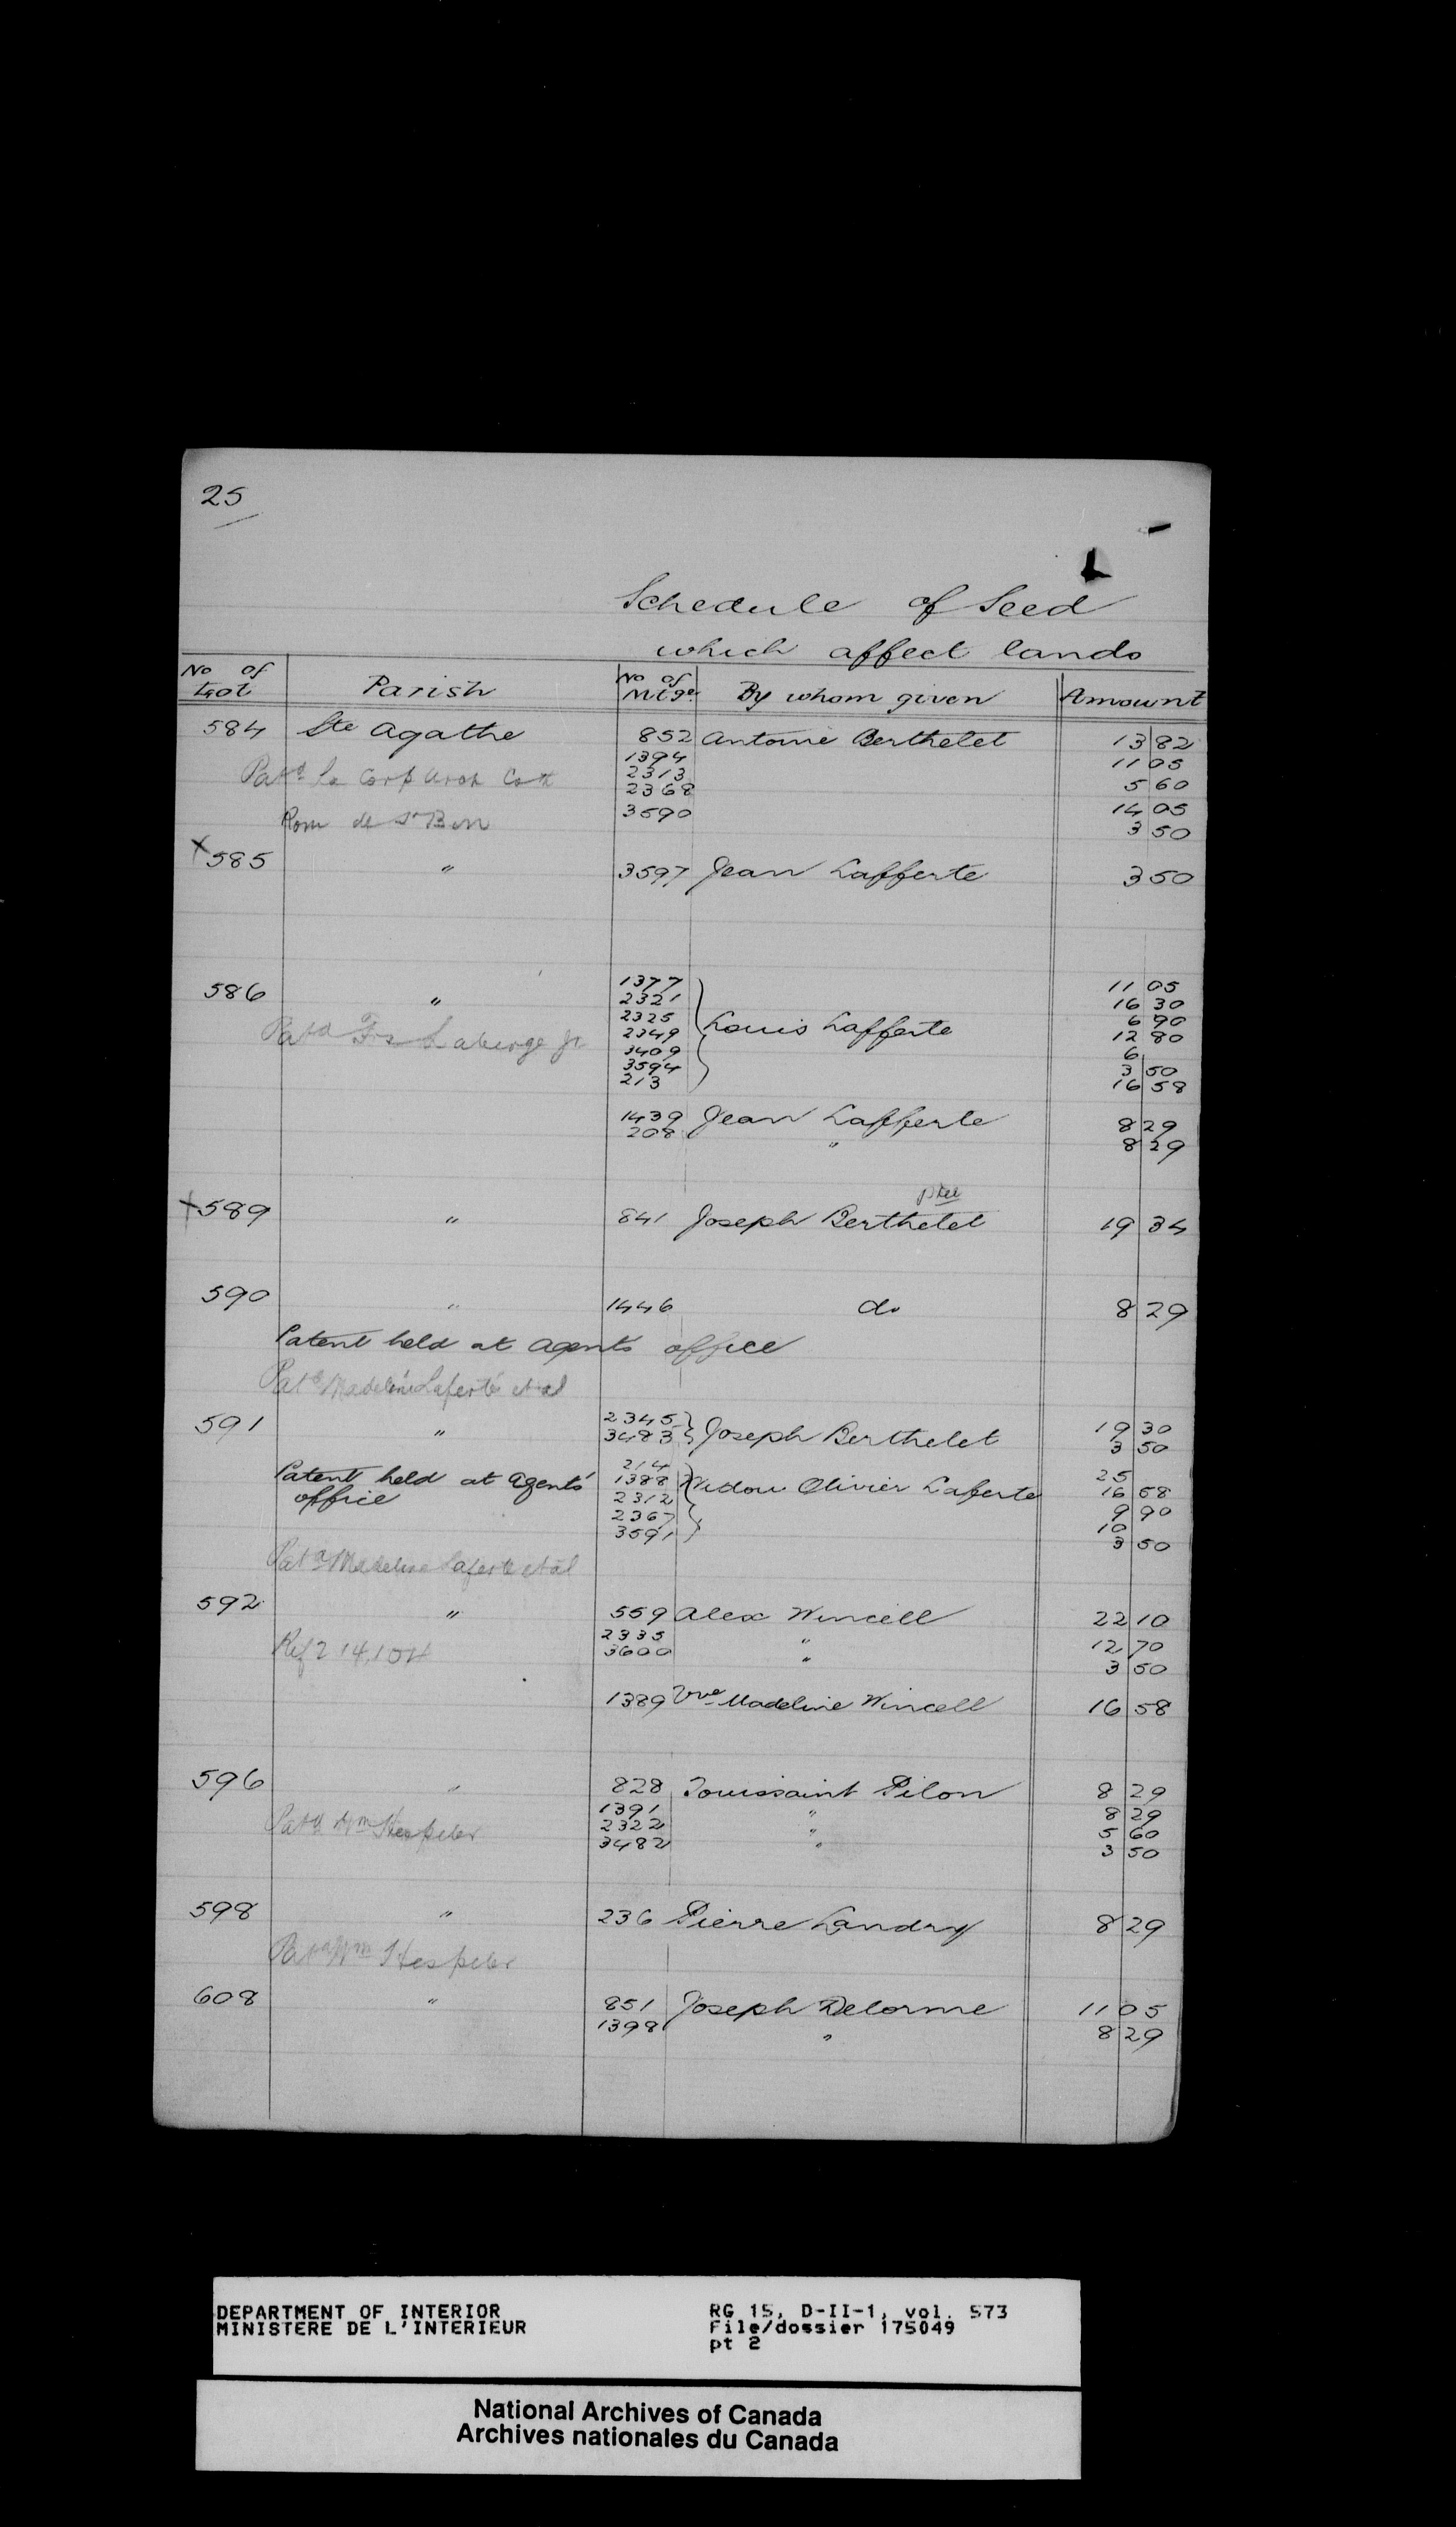 25
Schedule of Seed
which affect lands
No of Lot Parish No of Mtge. By whom given Amount
584 Ste Agathe 852 Antoine Berthelet 13 82
1394 11 05
Patd La Corp Arch Cath 2313 5 60
2368 14 05
Rom de St Bon 3590 3 50
X 585 " 3597 Jean Lafferte 3 50
586 " 1377 11 05
2321 16 30
2325 6 90
Patd Frs Laberge Jr 2349 Louis Lafferte 12 80
3409 6
3594 3 50
213 16 58
1439 Jean Lafferte 8 29
208 " 8 29
X 589 " 841 Joseph Berthelet 19 34
590 " 1446 do 8 29
Patent held at Agents office
Patd Madeline Laferté et al
591 " 2345 Joseph Berthelet 19 30
3483 3 50
214 25
Patent held at Agents' 1388 Widow Olivier Laferte 16 58
office 2312 9 90
2367 10
3591 3 50
Patd Madeline Laferte et al
592 " 559 Alex Wincell 22 10
2335 " 12 70
Ref 214,104 3600 " 3 50
1389 Vve Madeline Wincell 16 58
596 " 828 Toussaint Pilon 8 29
1391 " 8 29
Patd Wm Hespeler 2322 " 5 60
3482 " 3 50
598 " 236 Pierre Landry 8 29
Patd Wm Hespeler
608 " 851 Joseph Delorme 11 05
1398 " 8 29
DEPARTMENT OF INTERIOR
MINISTERE DE L'INTERIEUR
RG 15, D-II-1, vol. 573
File/dossier 175049
pt 2
National Archives of Canada
Archives nationales du Canada